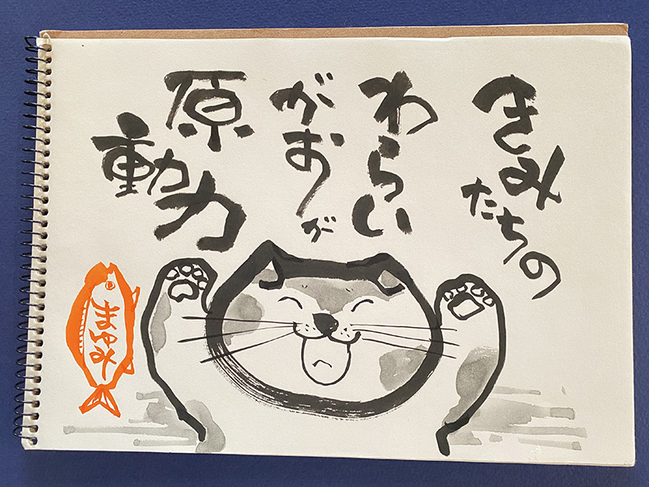 きみ
たちの
わらい
がおが
原
動力
まゆみ